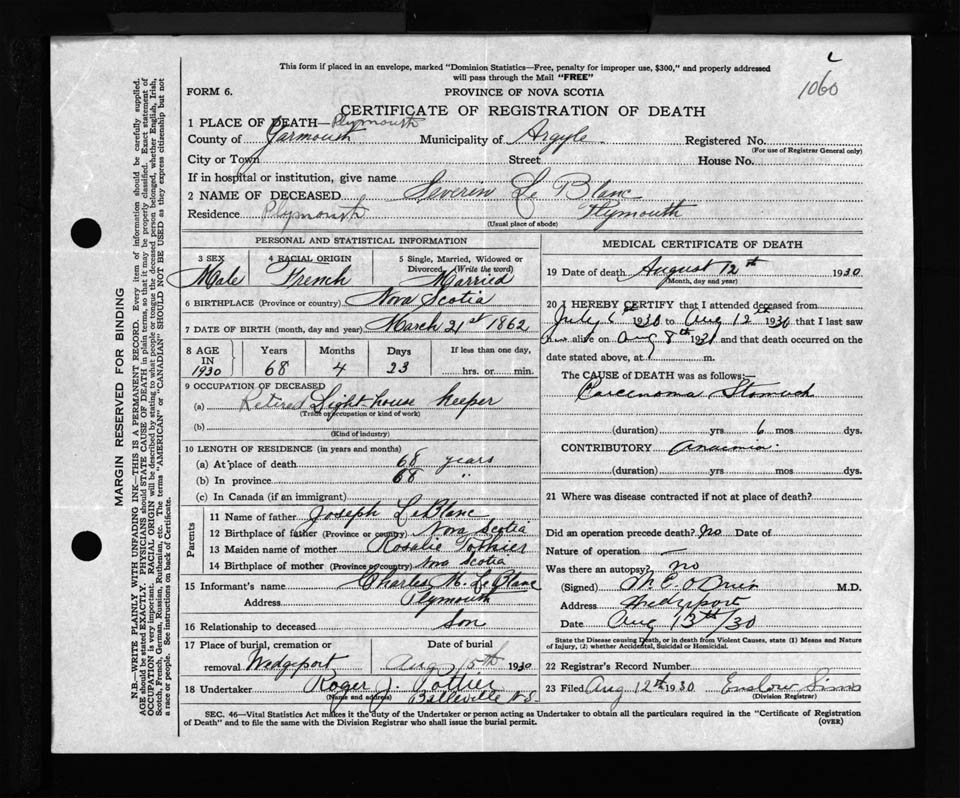 This form if placed in an envelope, marked "Dominion Statistics—Free, penalty for improper use, $300," and properly addressed
will pass through the Mail "FREE"
1060
FORM 6.
PROVINCE OF NOVA SCOTIA
CERTIFICATE OF REGISTRATION OF DEATH
1 PLACE OF DEATH— Plymouth
County of Yarmouth Municipality of Argyle Registered No.
(For use of Registrar General only)
City or Town Street House No.
If in hospital or institution, give name
2 NAME OF DECEASED Severin Le Blanc
Residence Plymouth Plymouth
(Usual place of abode)
PERSONAL AND STATISTICAL INFORMATION
3 SEX 4 RACIAL ORIGIN 5 Single, Married, Widowed or
Divorced (Write the word)
Male French Married
6 BIRTHPLACE (Province or country) Nova Scotia
7 DATE OF BIRTH (month, day and year) March 21st 1862
8 AGE IN 1930 Years Months Days If less than one day,
68 4 23 hrs. or min.
9 OCCUPATION OF DECEASED
(a) Retired Light house Keeper
(Trade or occupation or kind of work)
(b)
(Kind of industry)
10 LENGTH OF RESIDENCE (in years and months)
(a) At place of death 68 years
(b) In province 68 "
(c) In Canada (if an immigrant)
Parents
11 Name of father Joseph LeBlanc
12 Birthplace of father (Province or country) Nova Scotia
13 Maiden name of mother Rosalie
14 Birthplace of mother (Province or country) Nova Scotia
15 Informant's name Charles M. Le Blanc
Address Plymouth
16 Relationship to deceased Son
17 Place of burial, cremation or Date of burial
removal Wedgeport Aug 15th 1930
18 Undertaker Roger J. Pottier
(Name and address) Belleville N.S.
MEDICAL CERTIFICATE OF DEATH
19 Date of death August 12th 1930
(Month, day and year)
20 I HEREBY CERTIFY that I attended deceased from
July 6 1930 to Aug 12th 1930 that I last saw
him alive on Aug 8th 1930 and that death occurred on the
date stated above, at m.
The CAUSE of DEATH was as follows:—
Carcinoma Stomach
(duration) yrs 6 mos dys.
CONTRIBUTORY Anaemia
(duration) yrs. mos. dys.
21 Where was disease contracted if not at place of death?
Did an operation precede death? no Date of
Nature of operation —
Was there an autopsy? no
(Signed) M.E. O'Brien M.D.
Address Wedgeport
Date Aug 13th/30
State the Disease causing Death, or in death from Violent Causes, state (1) Means and Nature
of Injury, (2) whether Accidental, Suicidal or Homicidal.
22 Registrar's Record Number
23 Filed Aug 12th 1930 Enslow Sims
(Division Registrar)
SEC. 46—Vital Statistics Act makes it the duty of the Undertaker or person acting as Undertaker to obtain all the particulars required in the "Certificate of Registration
of Death" and to file the same with the Division Registrar who shall issue the burial permit.
(OVER)
MARGIN RESERVED FOR BINDING
N.B.—WRITE PLAINLY WITH UNFADING INK—THIS IS A PERMANENT RECORD. Every item of information should be carefully supplied.
AGE should be stated EXACTLY. PHYSICIANS should STATE CAUSE OF DEATH in plain terms, so that it may be properly classified. Exact statement of
OCCUPATION is very important. RACIAL ORIGIN will be described by stating to what people or tongue the deceased person belonged, whether English, Irish,
Scotch, French, German, Russian, Ruthenian, etc. The terms "AMERICAN" or "CANADIAN" SHOULD NOT BE USED as they express citizenship but not
a race or people. See instructions on back of Certificate.